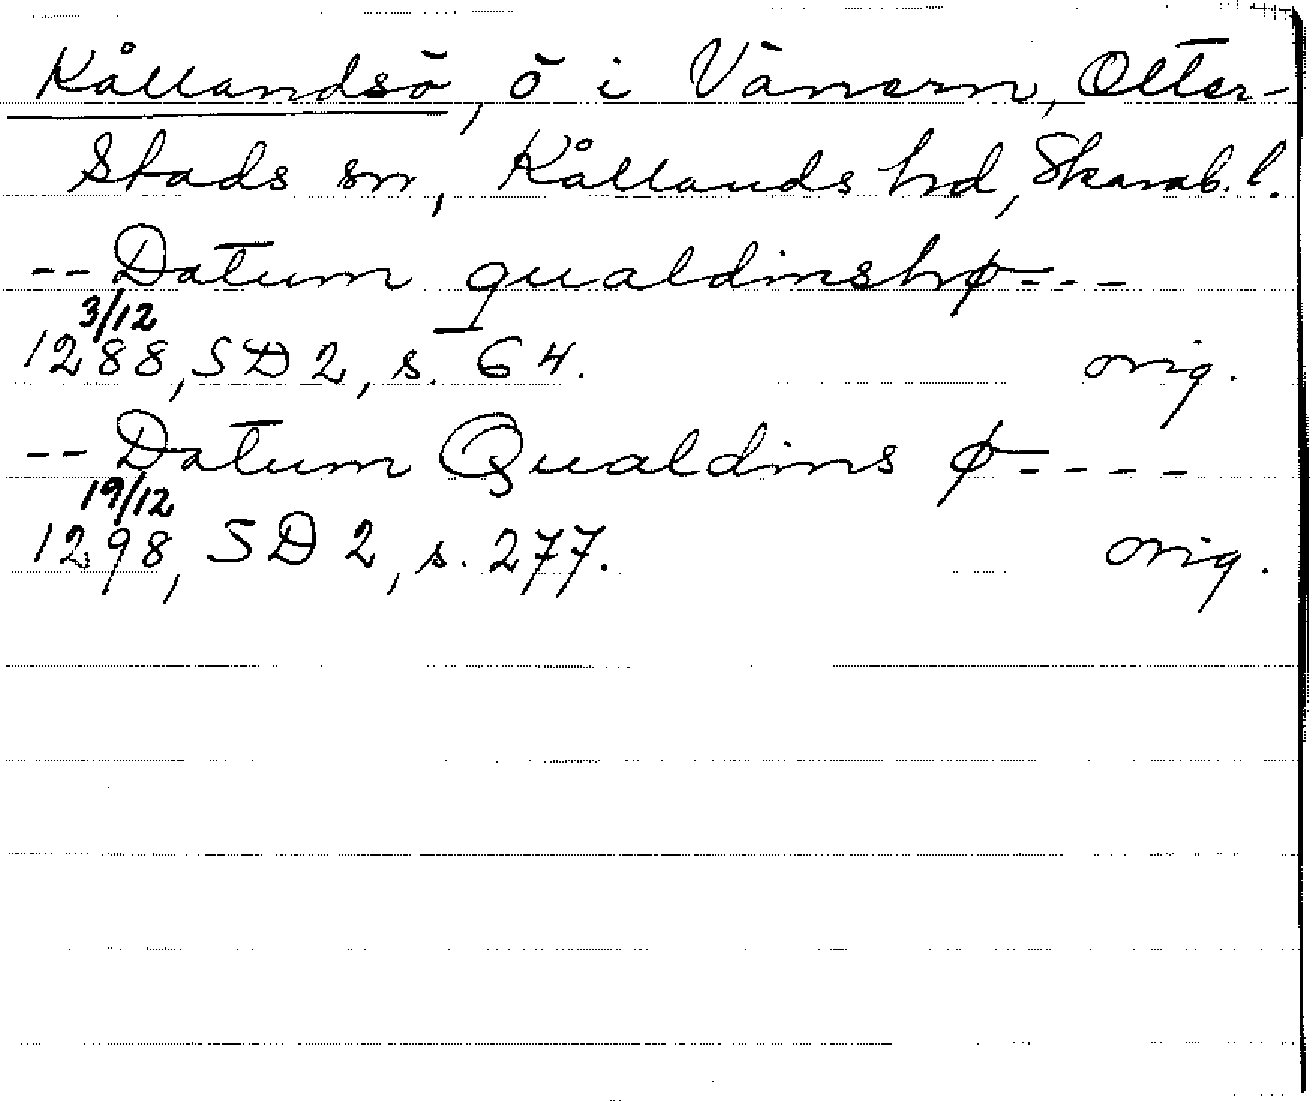 Kållandsö, ö i Vänern, Otter-
stads sn, Kållands hd, Skarab. l.
-- Datum qualdinshø---
3/12
1288, SD 2, s. 64. orig.
-- Datum Qualdins ø----
19/12
1298, SD 2, s. 277. orig.